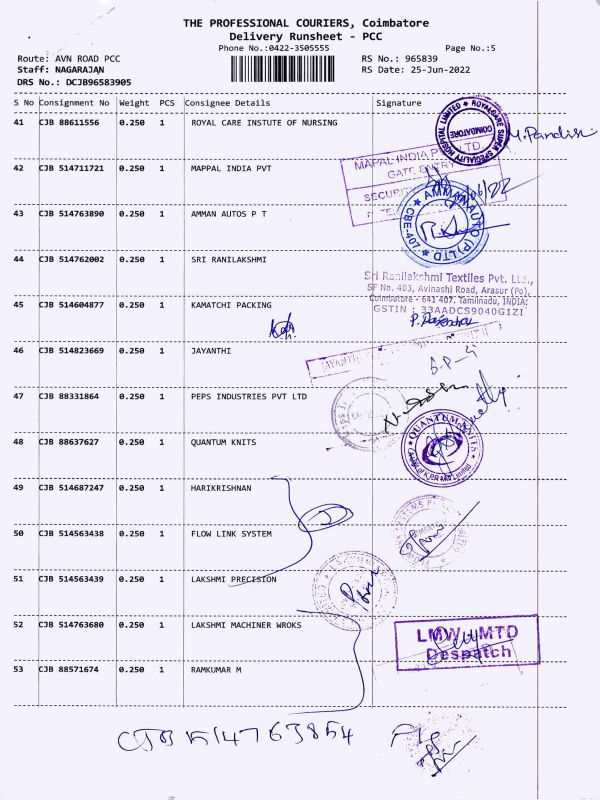 THE PROFESSIONAL COURIERS, Coimbatore
Delivery Runsheet - PCC
Phone No.:0422-3505555 Page No.:5
Route: AVN ROAD PCC RS No.: 965839
Staff: NAGARAJAN RS Date: 25-Jun-2022
DRS No.: DCJB96583905
S No Consignment No Weight PCS Consignee Details Signature
41 CJB 88611556 0.250 1 ROYAL CARE INSTUTE OF NURSING
ROYALCARE SUPER SPECIALITY HOSPITAL LIMITED
COIMBATORE
42 CJB 514711721 0.250 1 MAPPAL INDIA PVT
MAPAL INDIA P LTD.
GATE ENTRY
SECURITY
43 CJB 514763890 0.250 1 AMMAN AUTOS P T
AMMAN AUTO (P) LTD
CBE-407
44 CJB 514762002 0.250 1 SRI RANILAKSHMI
Sri Ranilakshmi Textiles Pvt. Ltd.,
SF No. 403, Avinashi Road, Arasur (Po),
Coimbatore - 641 407. Tamilnadu, INDIA.
GSTIN : 33AADCS9040G1ZI
45 CJB 514604877 0.250 1 KAMATCHI PACKING
46 CJB 514823669 0.250 1 JAYANTHI
47 CJB 88331864 0.250 1 PEPS INDUSTRIES PVT LTD
48 CJB 88637627 0.250 1 QUANTUM KNITS
QUANTUM KNITS
49 CJB 514687247 0.250 1 HARIKRISHNAN
50 CJB 514563438 0.250 1 FLOW LINK SYSTEM
51 CJB 514563439 0.250 1 LAKSHMI PRECISION
52 CJB 514763680 0.250 1 LAKSHMI MACHINER WROKS
LMW MTD
Despatch
53 CJB 88571674 0.250 1 RAMKUMAR M
CJB 514763854